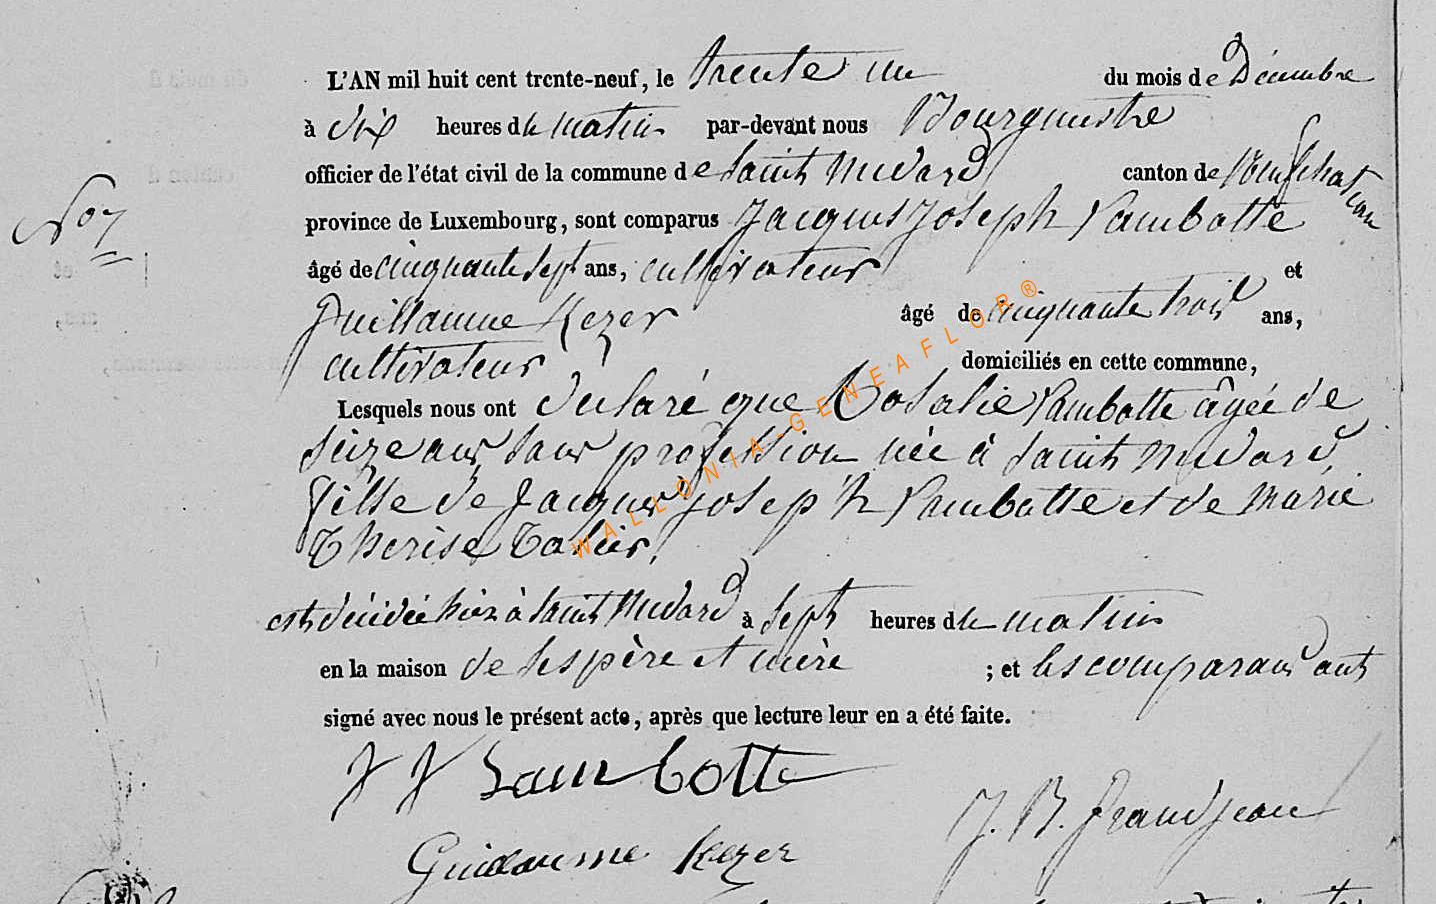 L'AN mil huit cent trente-neuf, le trente un du mois de Décembre
à dix heures du matin par-devant nous Bourguestre
officier de l'état civil de la commune de Saint Médard canton de Neufchateau
N° 7
province de Luxembourg, sont comparus Jacques Joseph Lambotte
âgé de cinquante sept ans, cultivateur et
Guillaume Kezer âgé de cinquante trois ans,
cultivateur domiciliés en cette commune,
Lesquels nous ont déclaré que Rosalie Lambotte âgée de
seize ans, sans profession née à Saint Médard
fille de Jacques Joseph Lambotte et de Marie
Therese
est décédée hier à Saint Médard à sept heures du matin
en la maison de ses père et mère ; et les comparans ont
signé avec nous le présent acte, après que lecture leur en a été faite.
J J Lambotte
J. B. Grandjean
Guillaume Kezer
WALLONIA-GENEAFLOR®